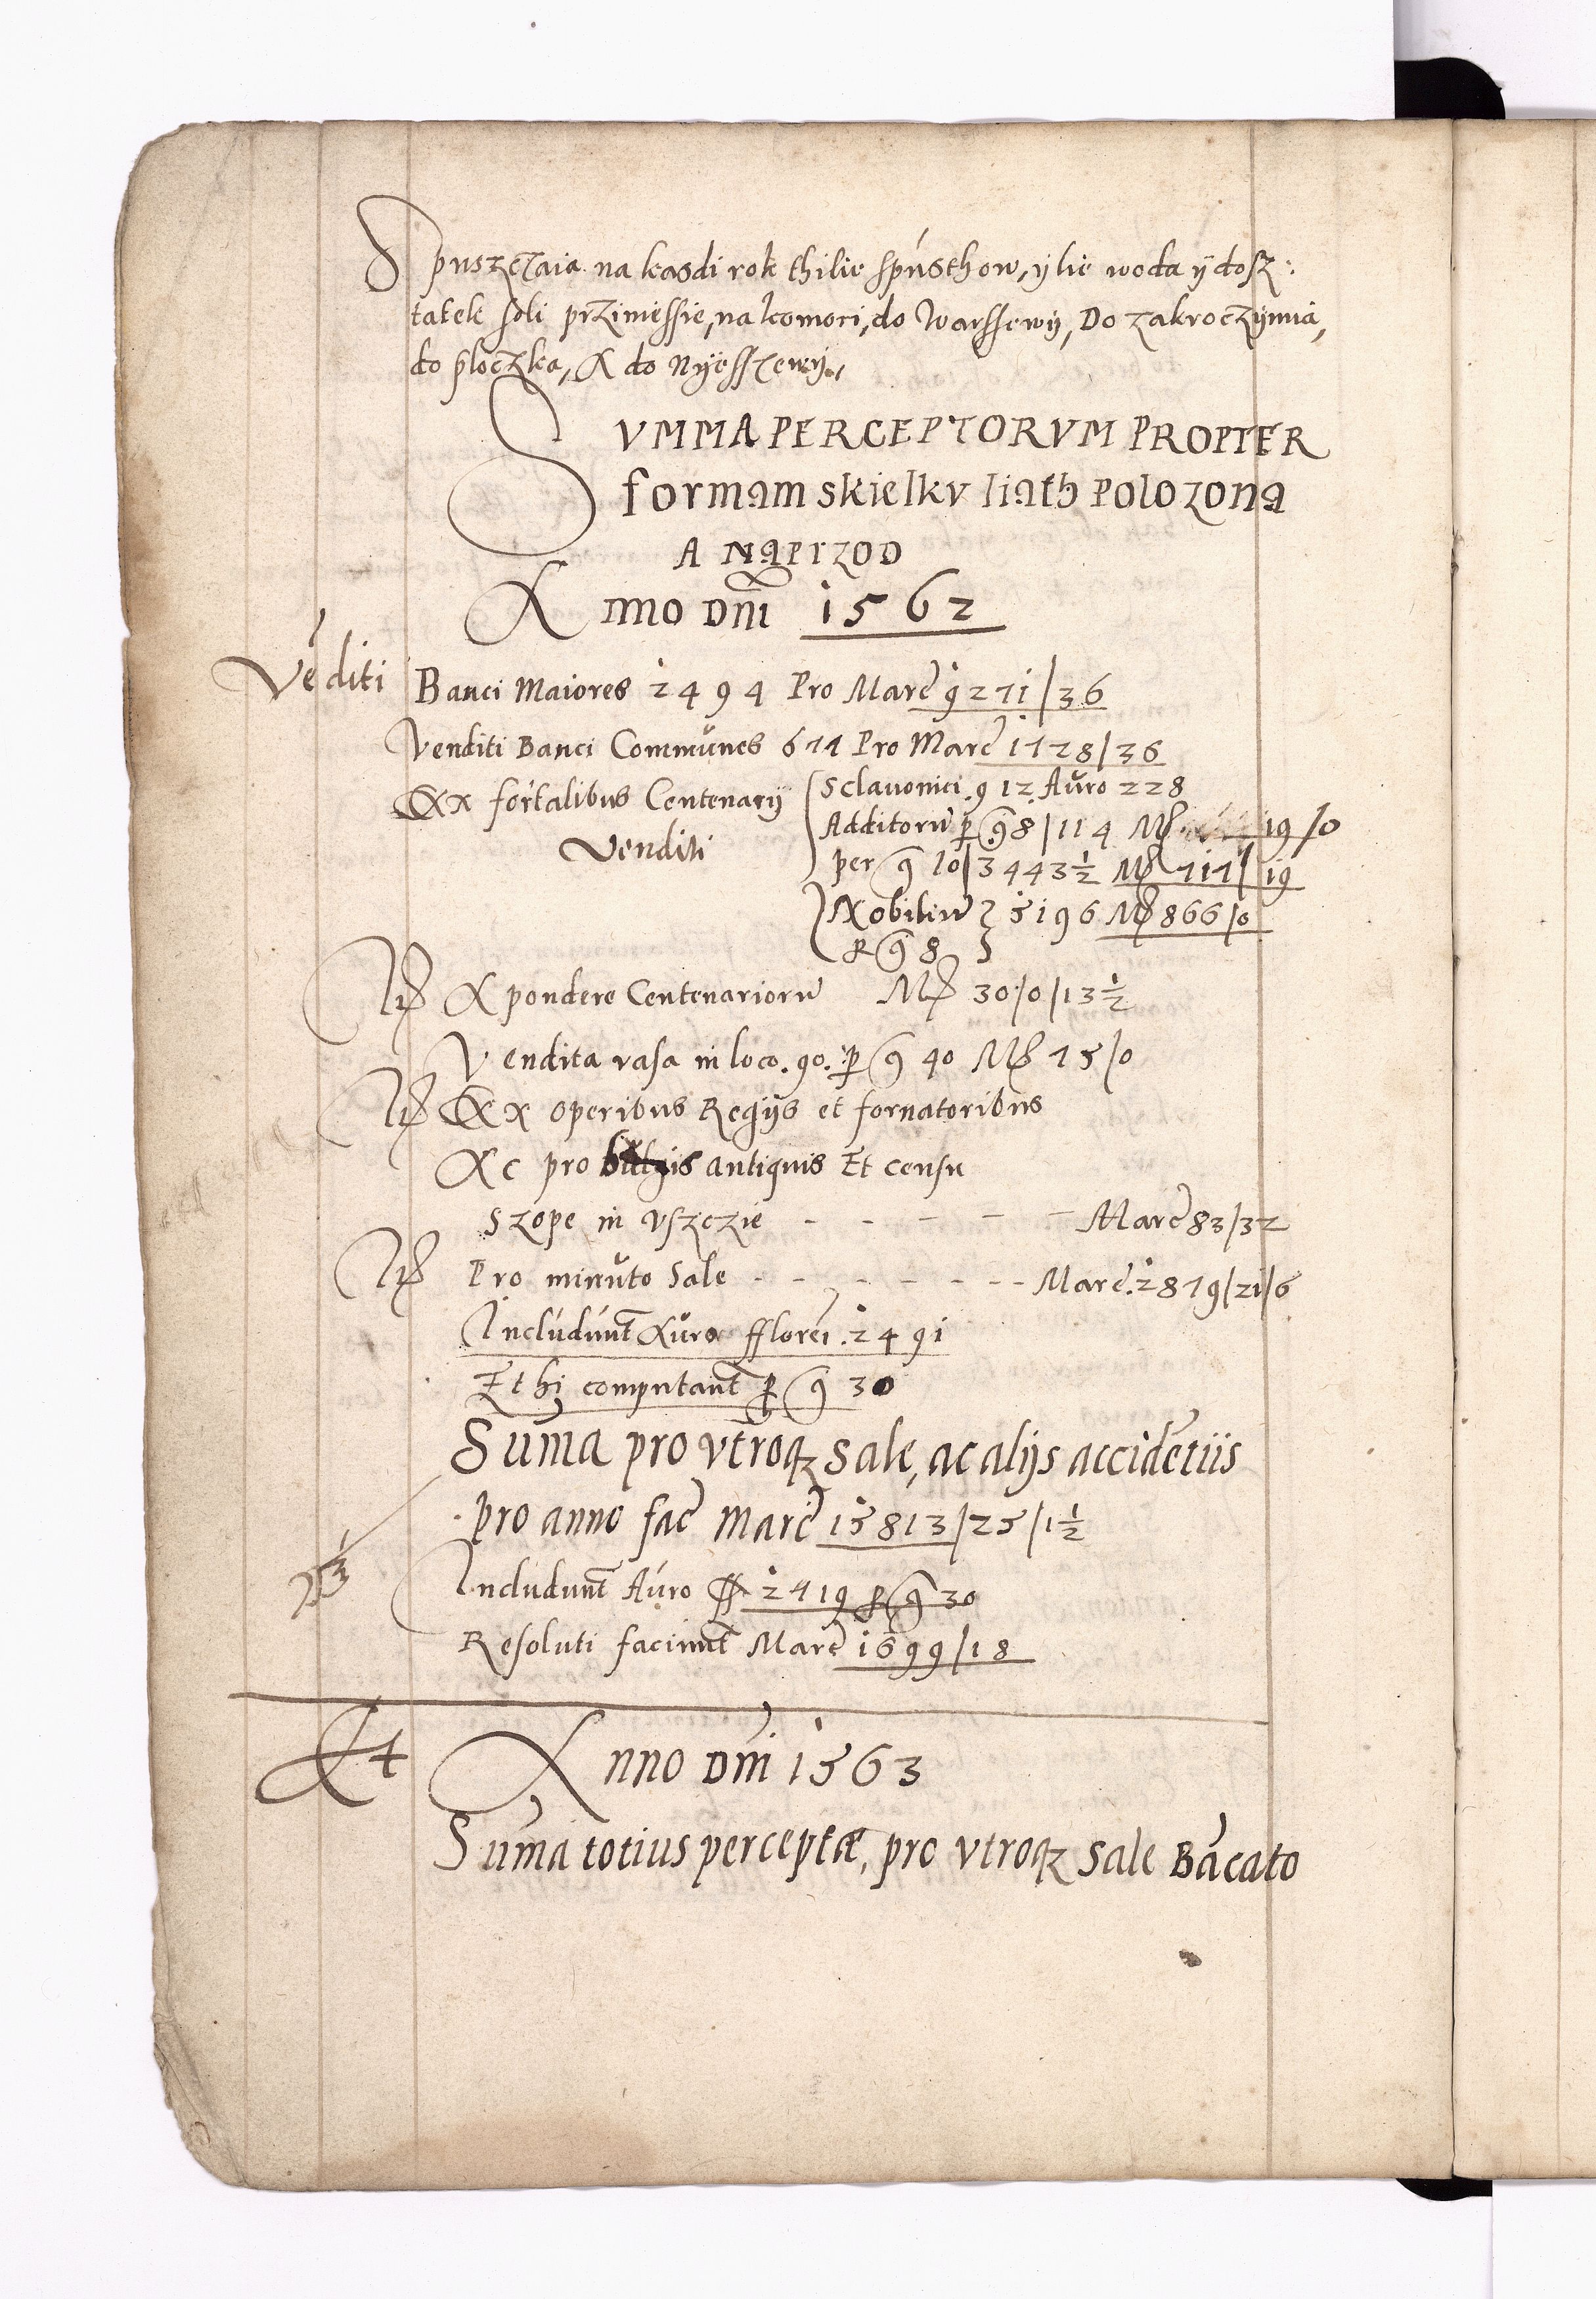 Spuszczaia na kasdi rok thilie spústhow, ÿ lie woda ÿ dosz:
tatek soli przimessie, na komori, do Warssewÿ, Do zakroczÿmia,
do ploczka, A do Nÿesszewÿ.,
SVMMA PERCEPTORVM PROPTER
formam skielkv liath polozona
A NaPrzoD
Anno Dni 1562
Vediti Banci Maiores 2494 Pro Marc 9271/36
Venditi Banci Communes 677 Pro Marc 1728/36
Ex fortalibus Centenarÿ
Venditi
Sclauonici. 912. Auro 228
Additoru p g 8/114 M 19/0
per g 10/3443½ M 717/19
Nobiliu 5196 M 866/0
p g 8
A pondere Centenarioru M 30/0/13½
Vendita vasa in loco. 90. p g 40 M 75/0
Ex operibus Regÿs et fornatoribus
Ac pro antiquis Et censu
szope in vszczie - - - - - Marc 83/32
Pro minuto Sale - - - - - - Marc. 2879/21/6
Includunt Auro fflorei. 2491
Et hi computant p g 30
Suma pro vtroq sale, ac alÿs accidetiis
pro anno fac Marc 15813/25/1½
Includunt Auro ff 2719 p g 30
Resoluti faciunt Marc 1699/18
Et Anno Dni 1563
Suma totius perceptæ, pro vtroq Sale Bacato